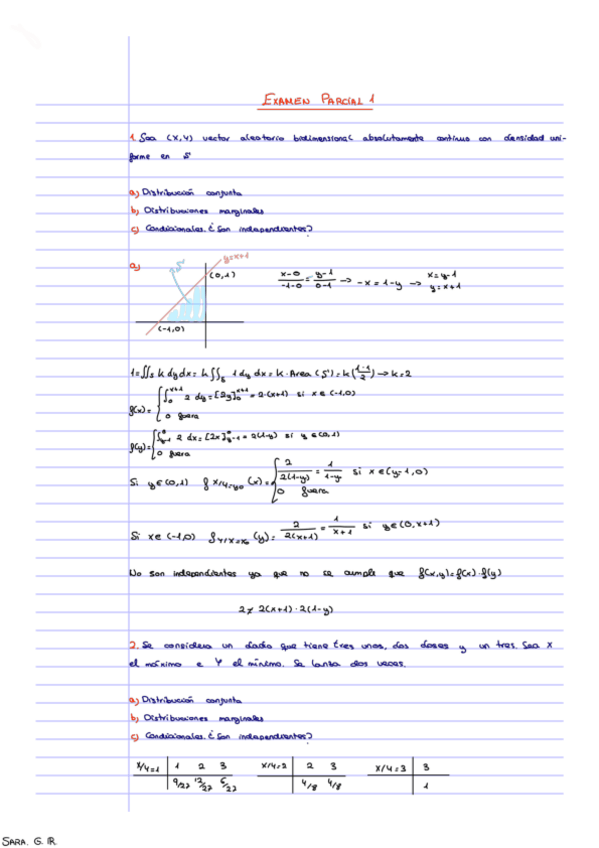 EXAMEN PARCIAL 1
1. Sea (X,Y) vector aleatorio bidimensional absolutamente continuo con densidad uni-
forme en S
a) Distribución conjunta
b) Distribuciones marginales
c) Condicionales. ¿Son independientes?
a)
S
y=x+1
(0,1)
(-1,0)
x-0/-1-0 = y-1/0-1 → -x=1-y → x=y-1
y=x+1
1=∬s k dy dx = k ∬s 1 dy dx = k·Area (S) = k(1·1/2) → k=2
f(x)= { ∫₀^(x+1) 2 dy = [2y]₀^(x+1) = 2·(x+1) si x∈(-1,0)
0 fuera
f(y)= { ∫_(y-1)^0 2 dx = [2x]_(y-1)^0 = 2(1-y) si y∈(0,1)
0 fuera
Si y∈(0,1) f x/y=y₀ (x) = { 2/2(1-y) = 1/1-y si x∈(y-1,0)
0 fuera
Si x∈(-1,0) f Y/X=x₀ (y) = 2/2(x+1) = 1/x+1 si y∈(0,x+1)
No son independientes ya que no se cumple que f(x,y)=f(x)·f(y)
2 ≠ 2(x+1)·2(1-y)
2. Se considera un dado que tiene tres unos, dos doses y un tres. Sea X
el máximo e Y el mínimo. Se lanza dos veces.
a) Distribución conjunta
b) Distribuciones marginales
c) Condicionales. ¿Son independientes?
X/Y=1 1 2 3
9/27 12/27 6/27
X/Y=2 2 3
4/8 4/8
X/Y=3 3
1
SARA. G. R.